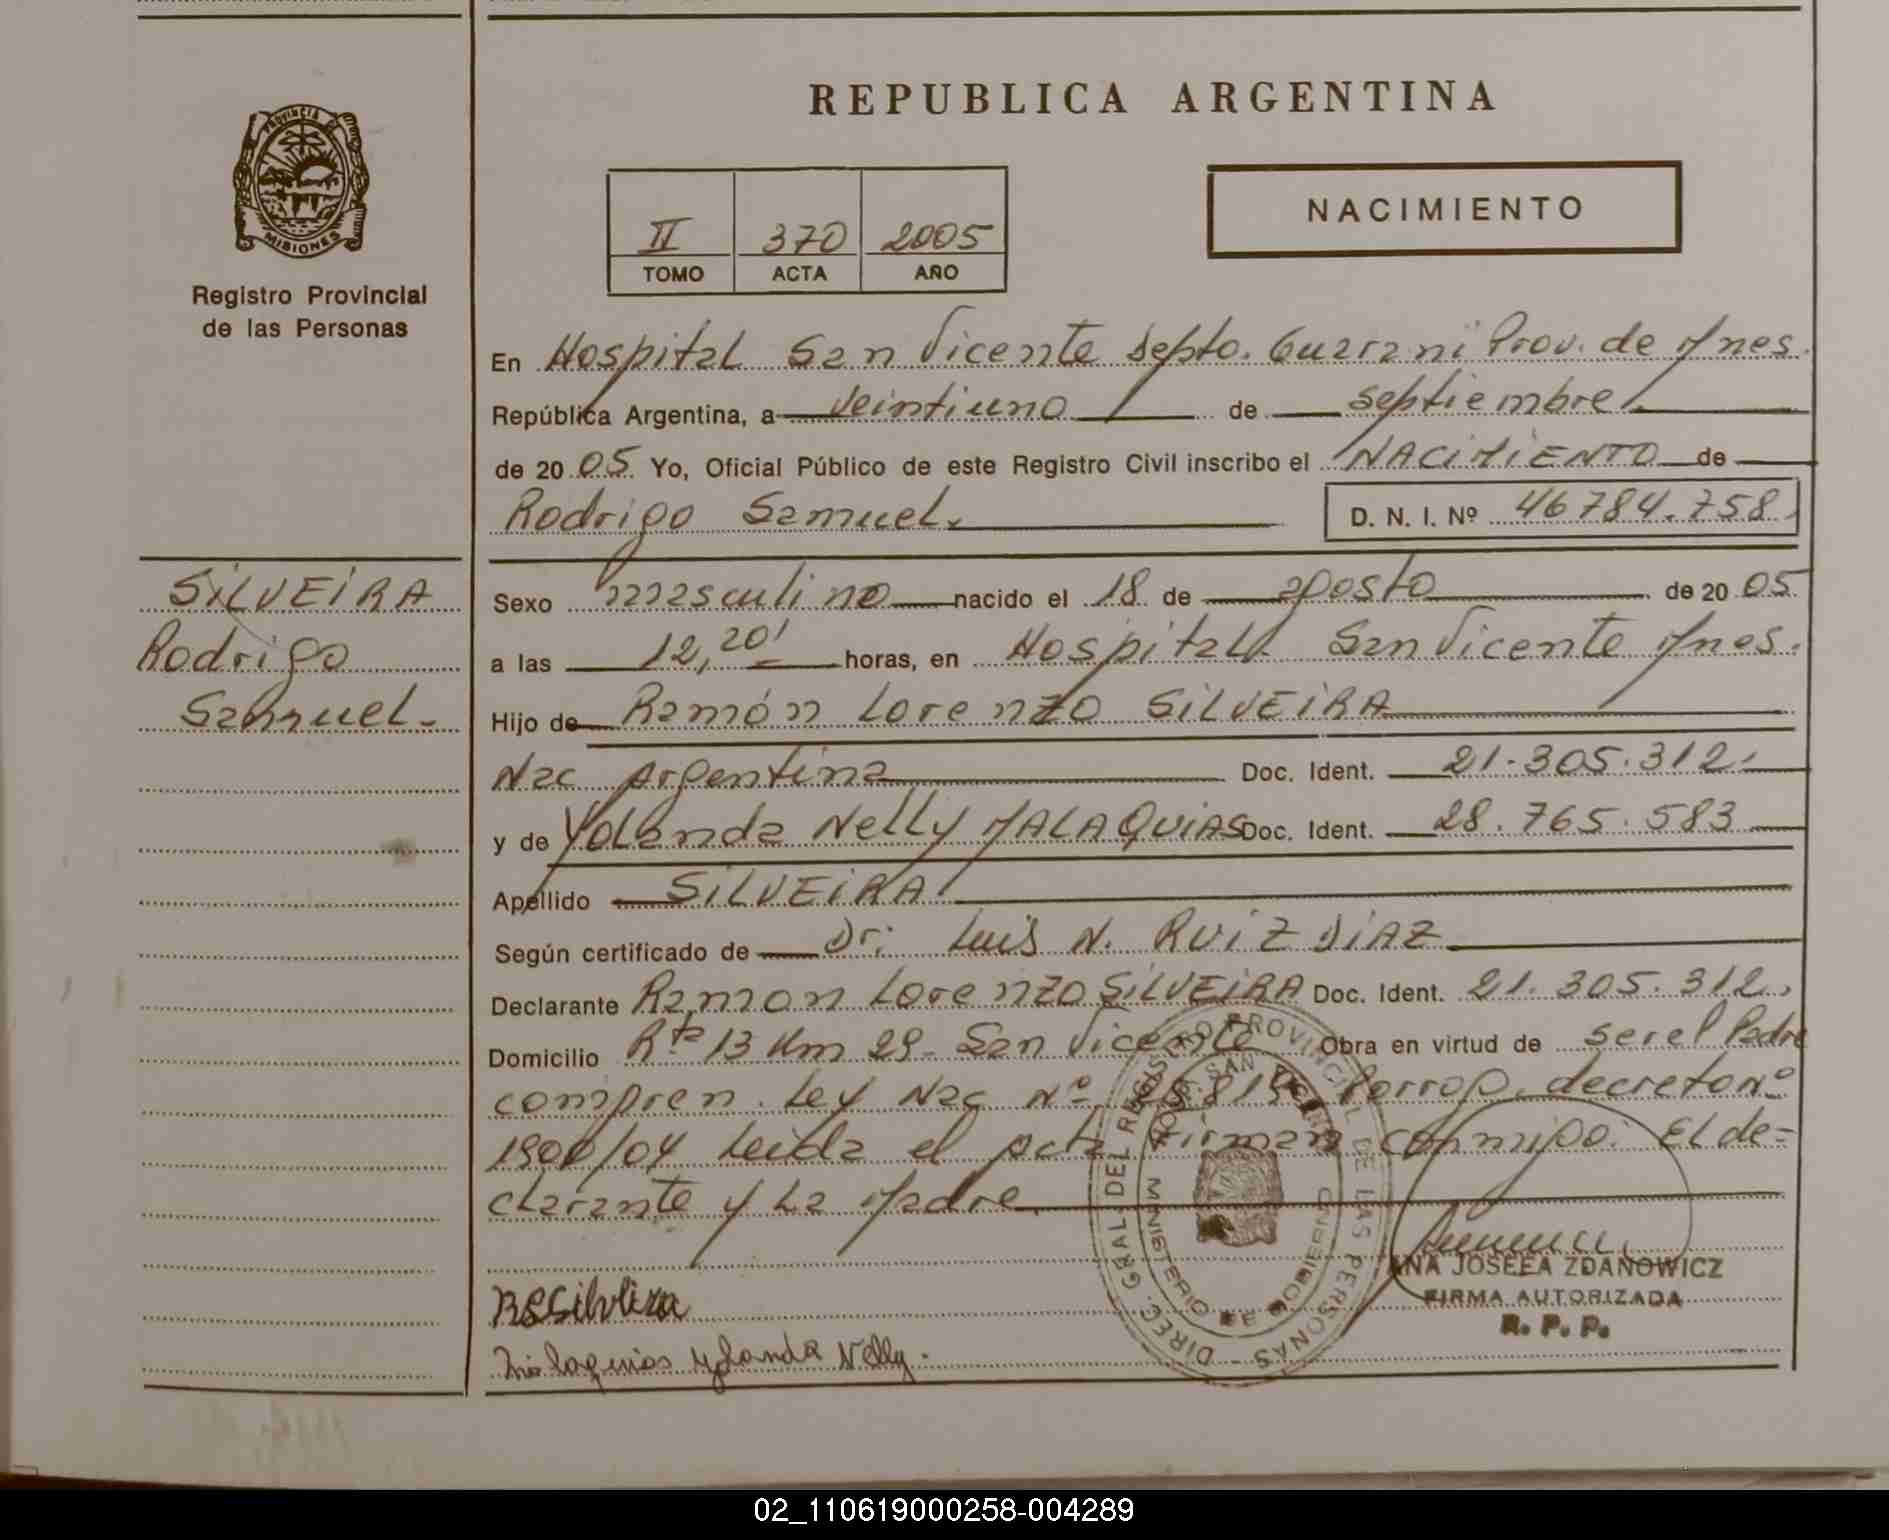 REPUBLICA ARGENTINA
PROVINCIA DE
MISIONES
Registro Provincial
de las Personas
II 370 2005
TOMO ACTA AÑO
NACIMIENTO
En Hospital San Vicente Depto. Guarani Prov. de Mnes.
República Argentina, a veintiuno de septiembre
de 2005 Yo, Oficial Público de este Registro Civil inscribo el NACIMIENTO de
Rodrigo Samuel. D. N. I. Nº 46784.758.
SILVEIRA
Rodrigo
Samuel.
Sexo masculino nacido el 18 de agosto de 2005
a las 12,20' horas, en Hospital San Vicente Mnes.
Hijo de Ramón Lorenzo SILVEIRA
Nac Argentina Doc. Ident. 21.305.312.
y de Yolanda Nelly MALAQUIAS Doc. Ident. 28.765.583
Apellido SILVEIRA
Según certificado de Dr: Luis N. RUIZ DIAZ
Declarante Ramon Lorenzo SILVEIRA Doc. Ident. 21.305.312.
Domicilio Rta 13 Km 29 - San Vicente Obra en virtud de ser el Padre
compren. Ley Nac Nº 25.819 Porrog. decreto Nº
1900/04 Leida el acta firman conmigo: El de=
clarante y La Madre
DIREC. GRAL. DEL REGISTRO PROVINCIAL DE LAS PERSONAS
HOSP. SAN VICENTE
MINISTERIO DE GOBIERNO
ANA JOSEFA ZDANOWICZ
FIRMA AUTORIZADA
R. P. P.
RLSilveira
Malaquias Yolanda Nelly.
02_110619000258-004289